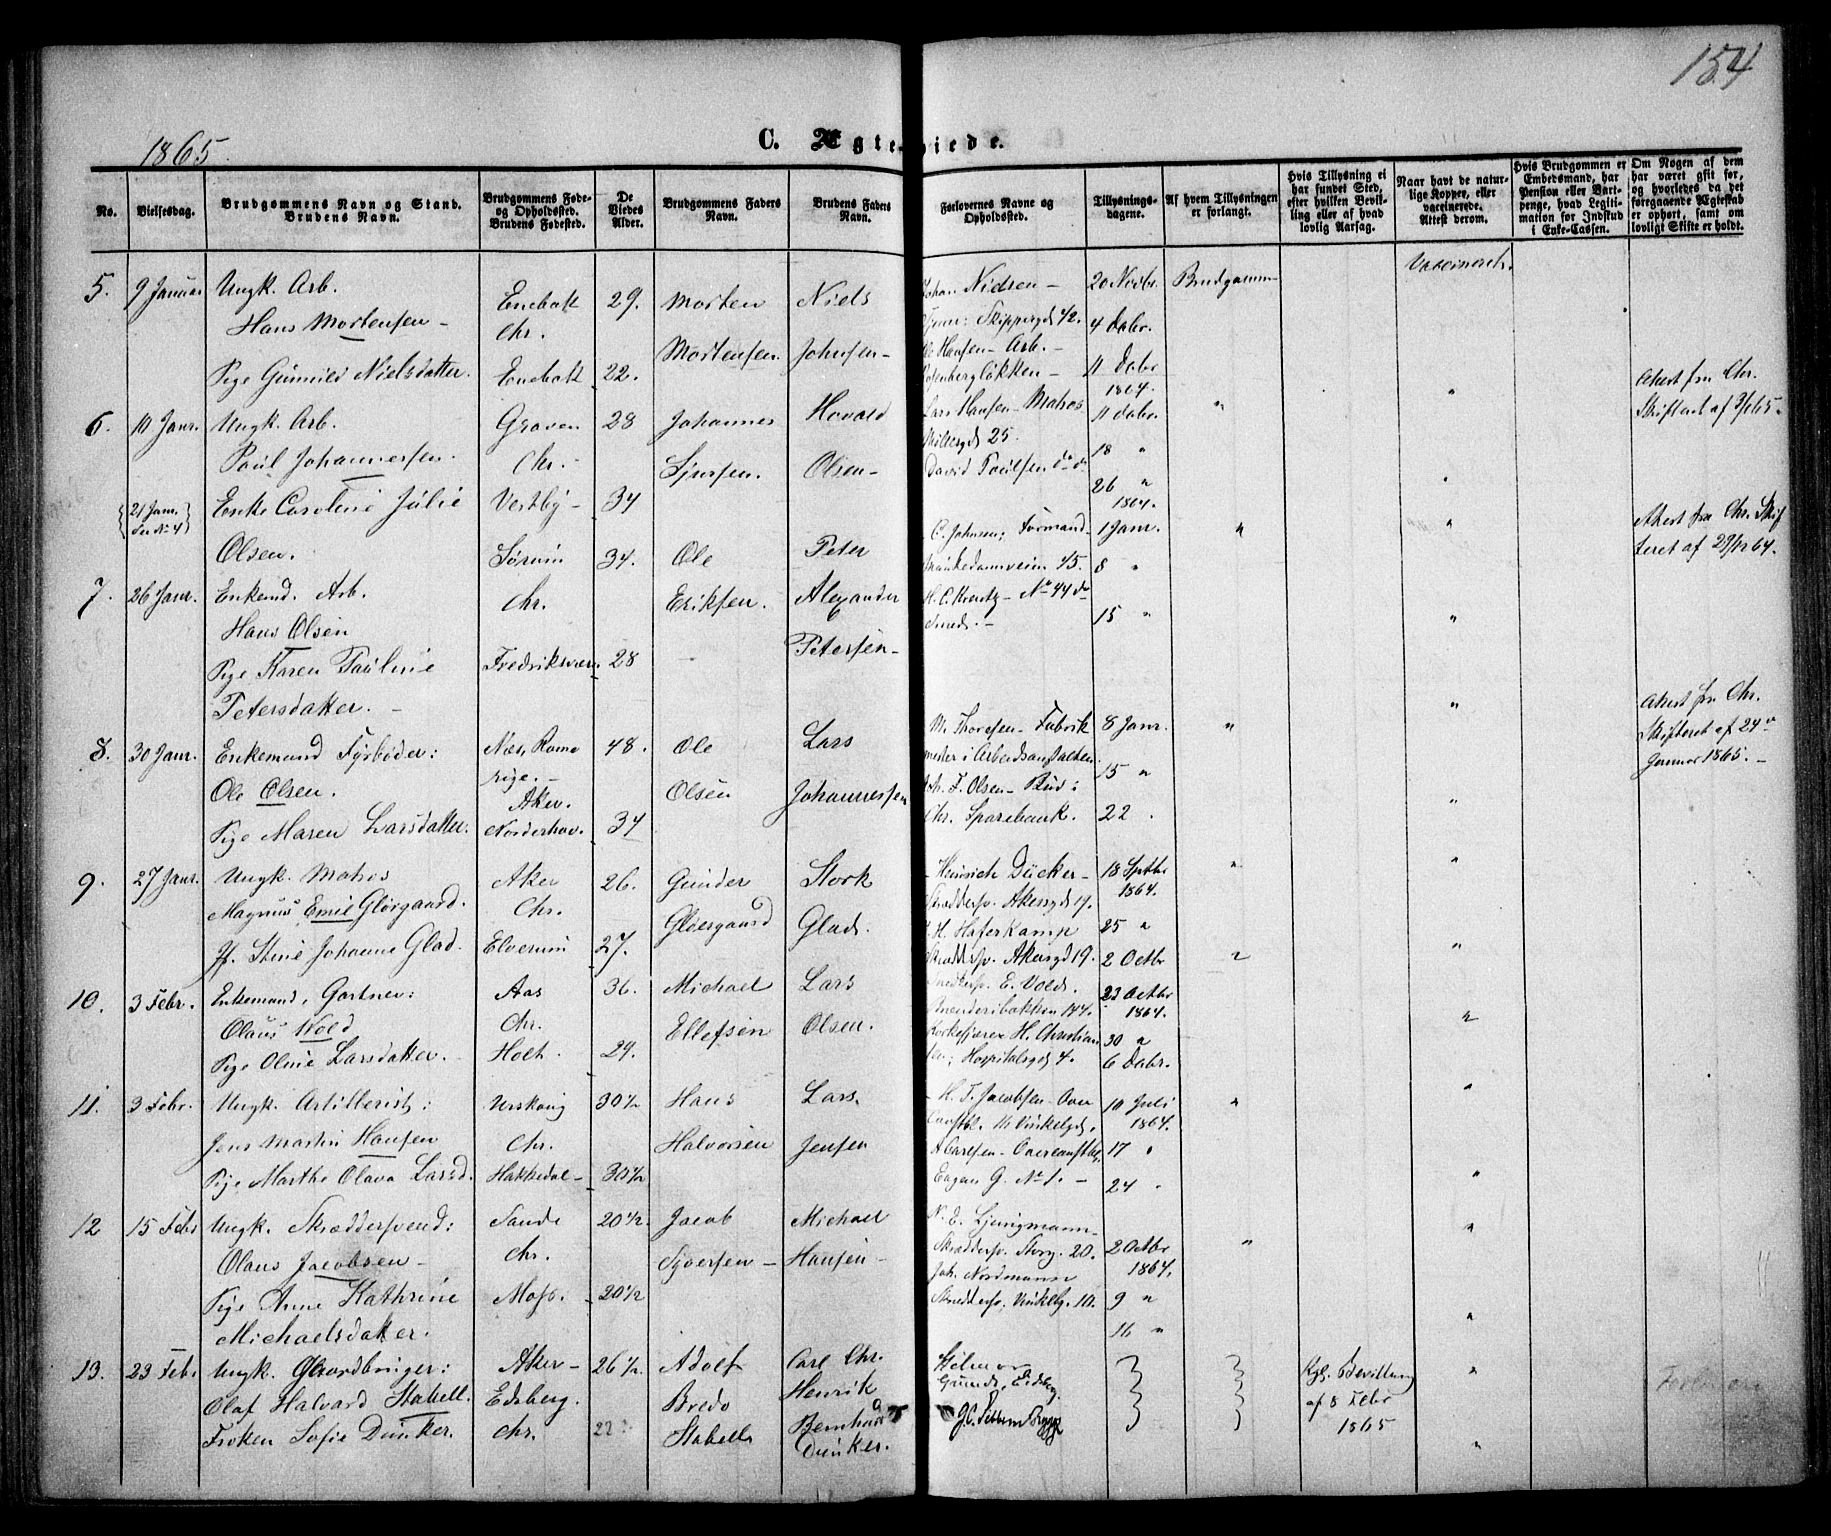 154
1865.
C. Ægteviede.
No.
Vielsesdag.
Brudgommens Navn og Stand.
Brudens Navn.
Brudgommens Føde-
og Opholdssted.
Brudens Fødested.
De
Viedes
Alder.
Brudgommens Faders
Navn.
Brudens Faders
Navn.
Forlovernes Navne og
Opholdssted.
Tillysnings-
dagene.
Af hvem Tillysningen
er forlangt.
Hvis Tillysning ei
har fundet Sted,
efter hvilken Bevil-
ling eller af hvad
lovlig Aarsag.
Naar havt de natur-
lige Kopper, eller
vaccinerede.
Attest derom.
Hvis Brudgommen er
Embedsmand, har
Pension eller Vart-
penge, hvad Legiti-
mation for Indskud
i Enke-Cassen.
Om Nogen af dem
har været gift før,
og hvorledes da det
foregaaende Ægteskab
er ophørt, samt om
lovligt Skifte er holdt.
5. 9 Januar Ungk. Arb. Enebak 29. Morten Niels Johan Nielsen - 20 Novbr. Brudgommen Vaccinerede.
Hans Mortensen - Chr. Mortensen. Johnsen - Skippergd 42. 4 Dcbr.
Ole Hansen - Arb. -
Pige Gunnild Nielsdatter. Enebak 22. Rosenbergløkken - 11 Dcbr 1864. "
6. 10 Janr. Ungk. Arb. Graven 28 Johannes Hovald Lars Hansen - Matros 11 Dcbr. " Attest fra Chr.
Skifteret af 3/1 65.
Paul Johannessen. Chr. - Sjursen. Olsen - 25. 18 "
David Paulsen do do 26 " 1864. "
{21 Janr. see No 4} Enke Caroline Julie Vestby - 34
Olsen.
7. 26 Janr. Enkemd. Arb. Sørum 34. Ole Peter C. Johnsen; Formand 1 Janr. " " Attest fra Chr. Skif
teret af 29/12 64.
Hans Olsen Chr. Eriksen. Alexander 45. 8 "
Petersen - H. C. Kreutz - No 44 do 15 " "
Smed. -
Pige Karen Pauline Fredriksværn. 28 -
Petersdatter. -
8. 30 Janr. Enkemand Fyrbøder: Næs, Rome 48. Ole Lars M. Thoresen - Fabrik 8 Janr. " " Attest fra Chr.
Skifteret af 24de
Januar 1865. -
Ole Olsen. rige. - Olsen Johannessen mester i Arbeidsanstalten. 15 "
Aker. F. Olsen - Bud i
Pige Maren Larsdatter. Norderhov. 34 Chr. Sparebank. 22 . "
9. 27 Janr. Ungk. Matros Aker 26. Gunder Stork - Heinrich Dücker - 18 Sptbr " "
1864.
Magnus Emil Gløegaard. Chr. Gløegaard Glad. Skræddersv. Akersgd 17. 25 "
Jf. Stine Johanne Glad. Elverum 27. H. Haferkamp
Skræddersv. Akersgd 19. 2 Octbr "
10. 3 Febr. Enkemand, Gartner: Aas 36. Michael Lars Snedkersv. E. Vold. 23 Octbr "
1864.
Olaus Wold Chr. Ellefsen Olsen. 144. 30 " "
Pige Oline Larsdatter. Holt. 29. H. Christian
sen; Hospitalsgd 4. 6 Dcbr. "
11. 3 Febr. Ungk. Artillerist: Urskoug 30½ Hans Lars. - H. T. Jacobsen - Over 10 Juli "
1864.
Jens Martin Hansen Chr. Halvorsen Jensen 16 Vinkelgd. 17 "
A Carlsen - Overconstbl.
Pige Marthe Olava Larsd. Hakkedal - 30½ No 1. - 24 " "
12 15 Febr Ungk. Skræddersvend: Sande 20½. Jacob Michael N. E. Ljungmann - "
Olaus Jacobsen - Chr. Syversen - Hansen - Skræddersv. Storg. 20. 2 Octbr "
1864.
Pige Anne Kathrine Moss. 20½ Joh. Nordmann
Michaelsdatter. Skræddersv. Vinkelg. 10. 9 " "
16 "
13. 23 Febr Ungk. Gaardbruger: Aker - 26½. Adolf Carl Chr. Kgl. Bevilling "
af 8 Febr
1865
Olaf Halvard Stabell. Edsberg. Bredo Henrik Eidsberg.
Frøken Sofie Dunker. Chr. 22 Stabell Bernhard
Dunker. "